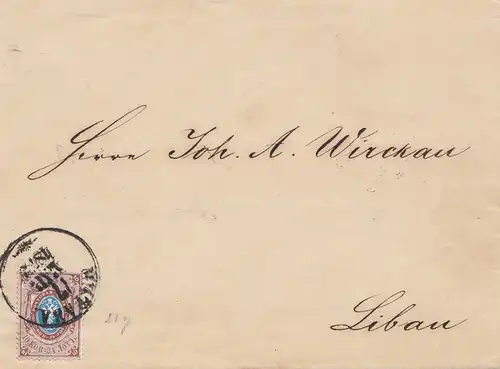 Herrn Joh. A. Wirckau
Libau
21 g